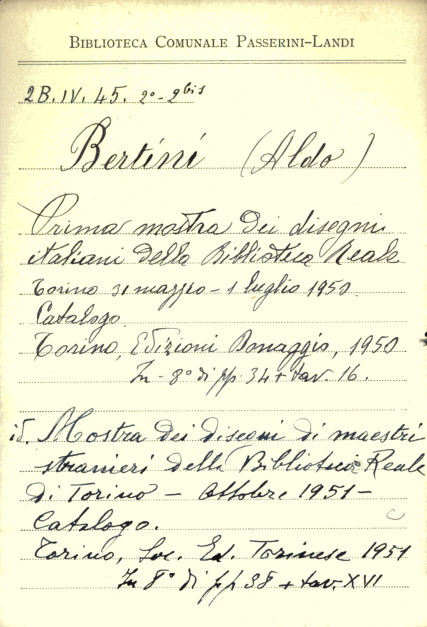 BIBLIOTECA COMUNALE PASSERINI-LANDI
2B.IV.45. 2º-2bis
Bertini (Aldo)
Prima mostra dei disegni
italiani della Biblioteca Reale
Torino 31 marzo - 1 luglio 1950
Catalogo
Torino, Edizioni 1950
In-8º di pp. 34 + tav. 16.
id. Mostra dei disegni di maestri
stranieri della Biblioteca Reale
di Torino - Ottobre 1951-
Catalogo.
Torino, Soc. Ed. Torinese 1951
In 8º di pp 38 + tav. XVI